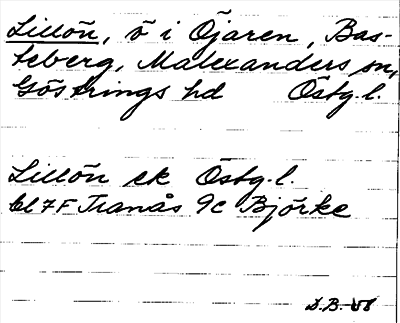 Lillön, ö i Öjaren, Bas-
teberg, Malexanders sn,
Göstrings hd Östg.l.
Lillön ek Östg.l.
bl 7F Tranås 9c Björke
D.B. 58